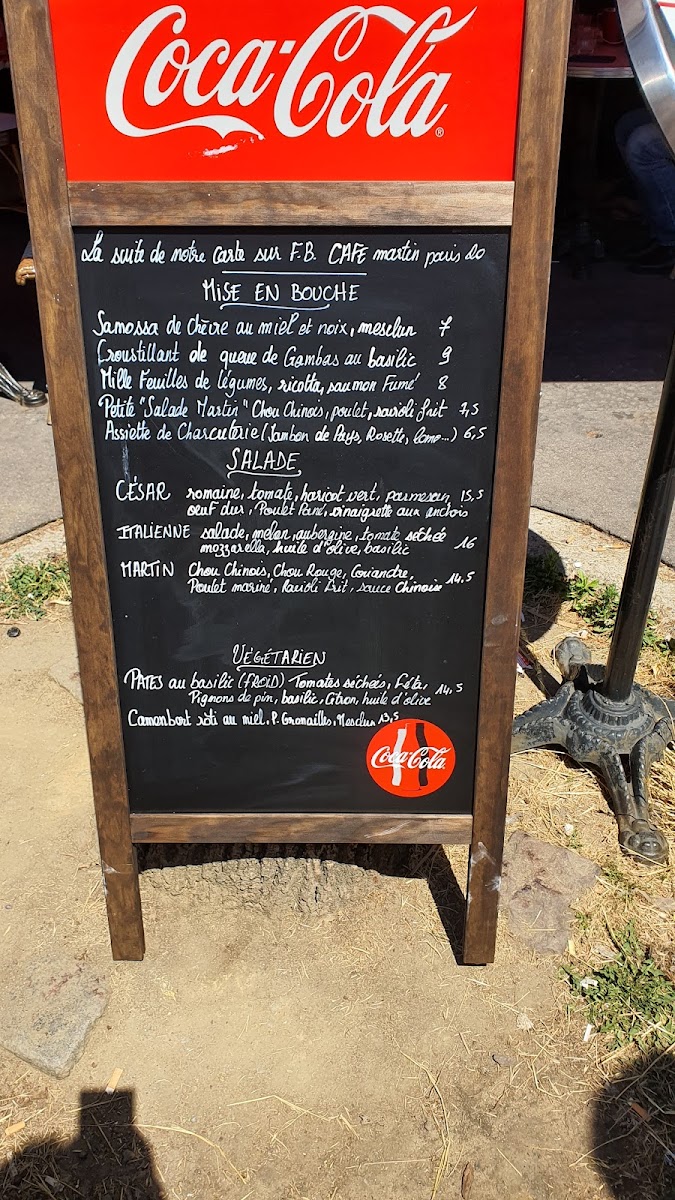 Coca-Cola®
La suite de notre carte sur F.B. CAFE martin paris 20
MISE EN BOUCHE
Samossa de chèvre au miel et noix, mesclun 7
Croustillant de queue de Gambas au basilic 9
Mille Feuilles de légumes, ricotta, saumon Fumé 8
Petite "Salade Martin" Chou Chinois, poulet, ravioli frit 7,5
Assiette de Charcuterie (Jambon de Pays, Rosette, lomo...) 6,5
SALADE
CÉSAR romaine, tomate, haricot vert, parmesan, 15,5
oeuf dur, Poulet Pané, vinaigrette aux anchois
ITALIENNE salade, melon, aubergine, tomate séchée
mozzarella, huile d'olive, basilic 16
MARTIN Chou Chinois, Chou Rouge, Coriandre, 14,5
Poulet mariné, Ravioli frit, sauce Chinoise
VÉGÉTARIEN
PATES au basilic (FROID) Tomates séchées, Féta, 14,5
Pignons de pin, basilic, Citron, huile d'olive
Camenbert rôti au miel, P. Grenailles, Mesclun 13,5
Coca-Cola